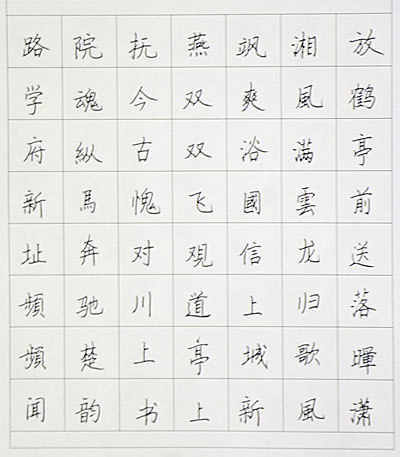 放鹤亭前送落暉潇
湘風满雲龙归歌風
飒爽浴國信上城新
燕双双飞观道亭上
抚今古愧对川上书
院魂纵馬奔驰楚韵
路学府新址頻頻闻